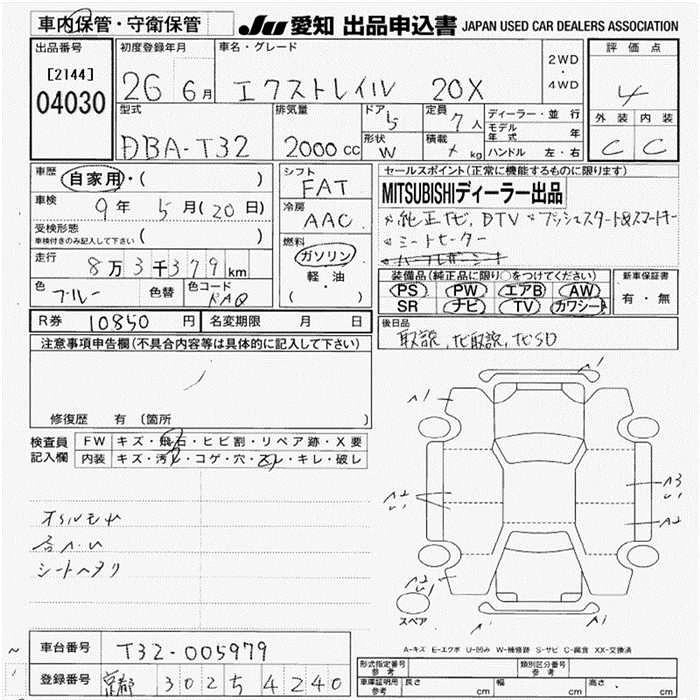 車内保管・守衛保管
JU 愛知 出品申込書 JAPAN USED CAR DEALERS ASSOCIATION
出品番号
[2144]
04030
初度登録年月
26 6月
車名・グレード
エクストレイル 20X
2WD
・
4WD
評価点
4
外装 内装
C C
型式
DBA-T32
排気量
2000 cc
ドア
5
形状
W
定員
7人
積載
kg
ディーラー・並行
モデル年式 年
ハンドル 左・右
車歴
自家用・( )
車検
9年 5月(20日)
受検形態
車検付きのみ記入して下さい ( )
走行
8万3千379km
色
ブルー
色替
色コード
RAQ
シフト
FAT
冷房
AAC
燃料
ガソリン
軽・油
( )
セールスポイント(正常に機能するものに限ります)
MITSUBISHIディーラー出品
*純正ナビ、DTV *プッシュスタート&スマートキー
*シートヒーター
装備品(純正品に限り○をつけてください)
PS PW エアB AW
SR ナビ TV カワシート
新車保証書
有・無
後日品
取説,ナビ取説,ナビSD
R券 10850円 名変期限 月 日
注意事項申告欄(不具合内容等は具体的に記入して下さい)
修復歴 有 (箇所 )
検査員
記入欄
FW キズ・飛石・ヒビ割・リペア跡・X要
内装 キズ・汚レ・コゲ・穴・スレ・キレ・破レ
シートヘタリ
A1
A1
A2
U1
A3
U1
A2
A2
U1
A1
A1
スペア
A-キズ E-エクボ U-凹み W-補修跡 S-サビ C-腐食 XX-交換済
車台番号 T32-005979
登録番号 京都 302 5 4240
形式指定番号
参考
類別区分番号
参考
車庫証明用
参考
長さ cm 幅 cm 高さ cm